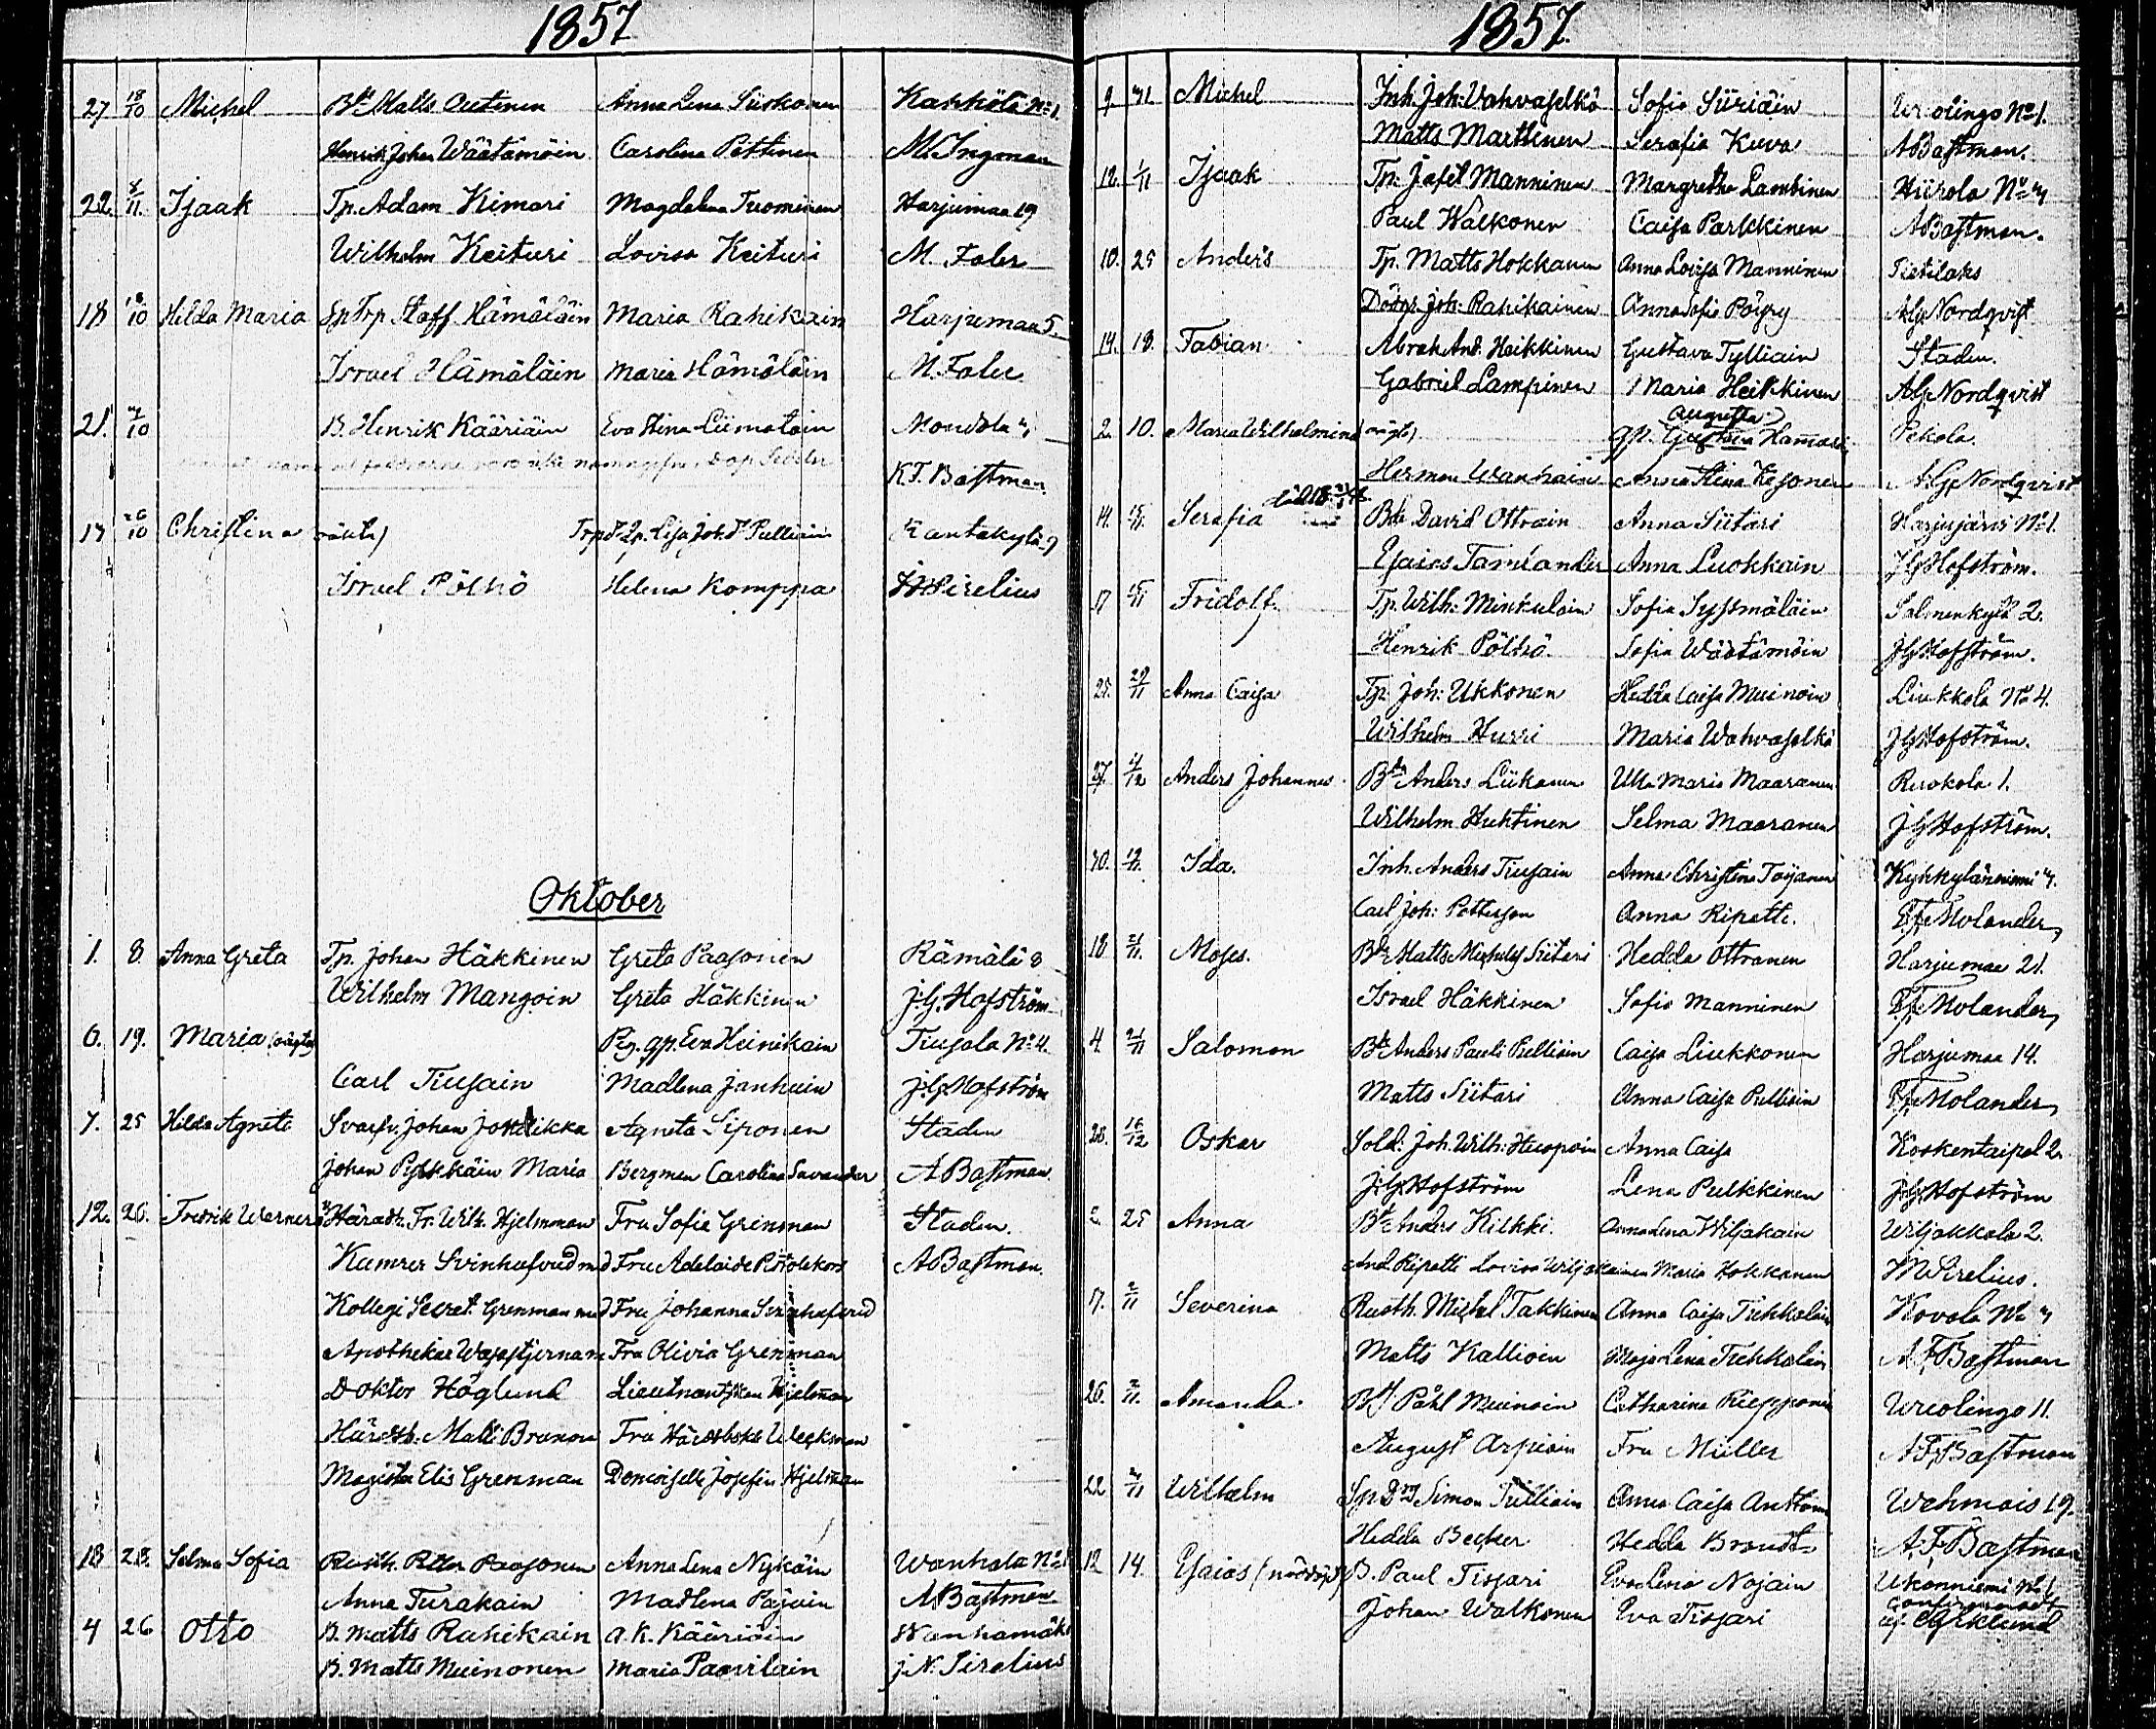 1857
27 18/10 Michel Bd Matts Autinen Anna Lena Siiskonen Kahkölä No 1.
Henrik Johan Wäätämöin Carolina Pöttinen M. Ingman
22. 8/11. Isaak Tp. Adam Kimari Magdalena Tuominen Harjumaa 19
Wilhelm Keituri Lovisa Keituri M. Faler
18 18/10 Hilda Maria Staff. Hämäläin Maria Rahikain Harjumaa 5
Israel Hämäläin Maria Hämäläin M. Faler
21. /10 B. Henrik Kääriäin Eva Stina Liimatain
K.F. Bastman
/10 Christina oäkta) Lisa Joh. dr Pulliain Kantakylä
Israel Pöllhö Helena Komppa Sirelius
Oktober
1. 8. Anna Greta Tp. Johan Häkkinen Greta Paasonen Rämälä 8
Wilhelm Mangoin Greta Häkkinen J.G. Hofström
6. 19. Maria (oägta) Pig. Eva Heinikain Tiusala No 4.
Carl Tiusain Madlena Janhuin J.G. Hofström
7. 25 Hilda Agneta Svarfv. Johan Agneta Siponen Staden
Johan Maria Bergman Carolina Savander A Bastman
12. 20. Fredrik Werner Häradh. Fr. Wilh. Hjelmman Fru Sofia Grenman Staden.
Kamrer Svinhufvud med Fru Adelaide A Bastman.
Kollegi Secret. Grenman med Fru Johanna Svinhufvud
Apothekar Fru Olivia Grenman
Doktor Höglund Lieutnantskan Hjelman
Häradsh. Fru
Magister Elis Grenman Demoiselle Josefin Hjelman
18 28. Selma Sofia Rusth. Petter Paasonen Anna Lena Nykäin Wanhala No
Anna Turakain Madlena Pajuin A Bastman
4 26 Otto B. Matts Rahikain A.K. Kääriäin Wanhamäki
B. Matts Muinonen Maria Paavilain J.N. Sirelius
1857.
9. Michel Inh. Joh: Vahvaselkä Sofia Siiriäin Ureolingo No 1.
Matts Marttinen Serafia Kuva A Bastman.
12. 1/11 Isaak Tp. Manninen Margretha Lambinen Hiirola No
Paul Walkonen Caisa Parkkinen A Bastman.
10. 25 Anders Tp. Matts Hokkanen Anna Lovisa Manninen Pietilaks
Joh: Rahikainen Anna Sofia Pöyry AG Nordqvist
14. 18. Fabian And. Heikkinen Gustava Tylliain Staden.
Gabriel Lampinen Maria Heikkinen AG Nordqvist
2. 10. Maria Wilhelmina oägt) Augusta Gp. Gustava Pekola.
Herman Wanhain Anna Stina Kasonen AG Nordqvist
14. Serafia Bd David Ottrain Anna Siitari Harjujärvi No 1.
Esaias Tamlander Anna Luokkain JG Hofström.
17 Fridolf. Tp. Wilh: Minkulain Sofia Syssmäläin Salmenkylä 2.
Henrik Pöllhö. Sofia Wäätämöin JG Hofström.
25. 29/11 Anna Caisa Tp: Joh: Ukkonen Hedda Caisa Muinoin Liukkola No 4.
Wilhelm Hurri Maria Wahvaselkä JG Hofström.
27. /12 Anders Johannes. Bd Anders Liikanen Ulla Maria Maaranen Ruokola 1.
Wilhelm Huhtinen Selma Maaranen JG Hofström.
30. Ida. Inh. Anders Tiusain Anna Christina Töyänen Kyhkylänniemi
Carl Joh: Pettersson Anna Ripatti. Molander
18 /11. Moses. Bd Matts Siitari Hedda Ottranen Harjumaa 21.
Israel Häkkinen Sofia Manninen Molander
4 /11 Salomon Bd Anders Pauli Pulliain Caisa Liukkonen Harjumaa 14.
Matts Siitari Anna Caisa Pulliain Molander
28. 16/12 Oskar Sold: Joh. Wilh: Huupoin Anna Caisa Koskentaipal 2.
JG Hofström Lena Pulkkinen JG Hofström
2. 25 Anna Bd Anders Kilkki. Anna Lena Wiljakain Wiljakkala 2.
And Ripatti Lovisa Wiljakainen Maria Hokkanen Sirelius.
17. /11 Severina Rusth. Michel Takkinen Anna Caisa Tiihkalain Kovola No
Matts Kallioin Maja Lena Tiihkalain A.F. Bastman
26. /11. Amanda. Påhl Muinoin Catharina Ureolingo 11.
August Arpiain Fru Müller A.F. Bastman
22 /11 Wilhelm Simon Tulliain Anna Caisa Anttoin Wehmais 19.
Hedda Becker Hedda Brandt A.F. Bastman
12 14. Esaias (nöddöpt) B. Paul Tissari Eva Lena Nojain Ukonniemi No 1
Johan Walkonen Eva Tissari confirmeradt af Eklund